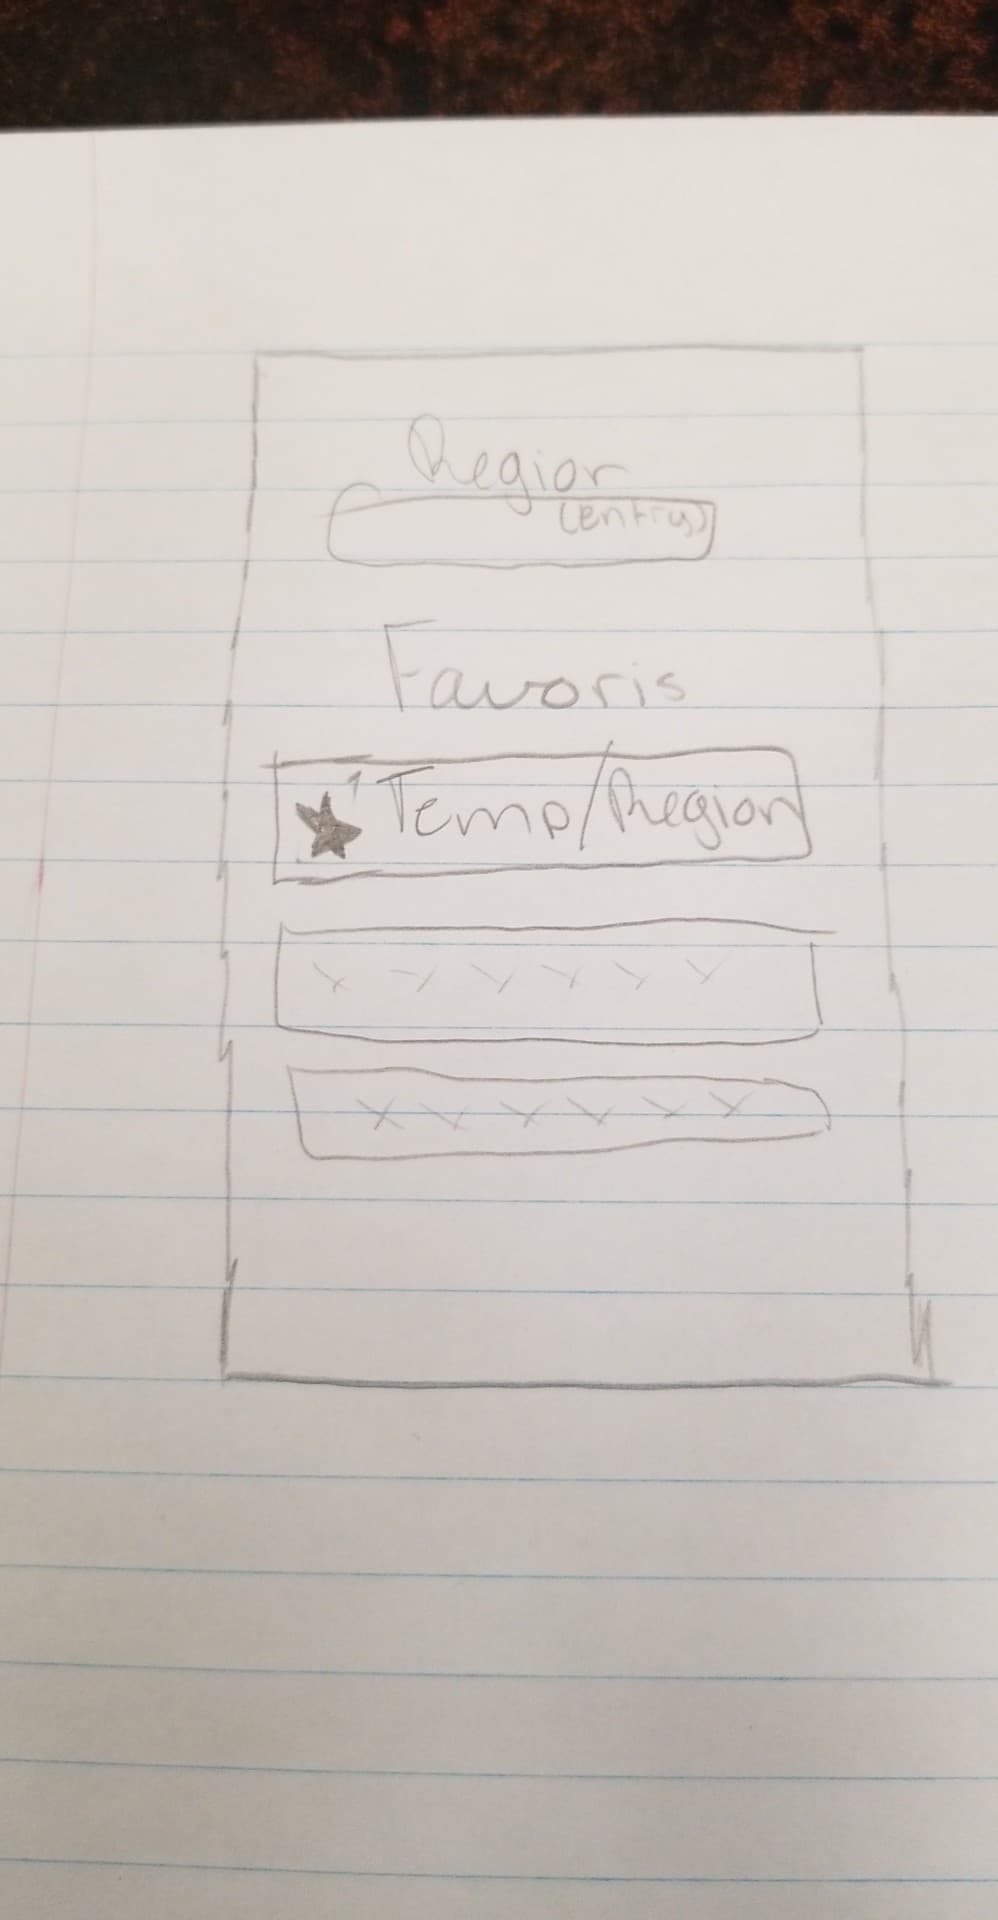 Region
(entry)
Favoris
Temp/Region
x x x x x x
x x x x x x